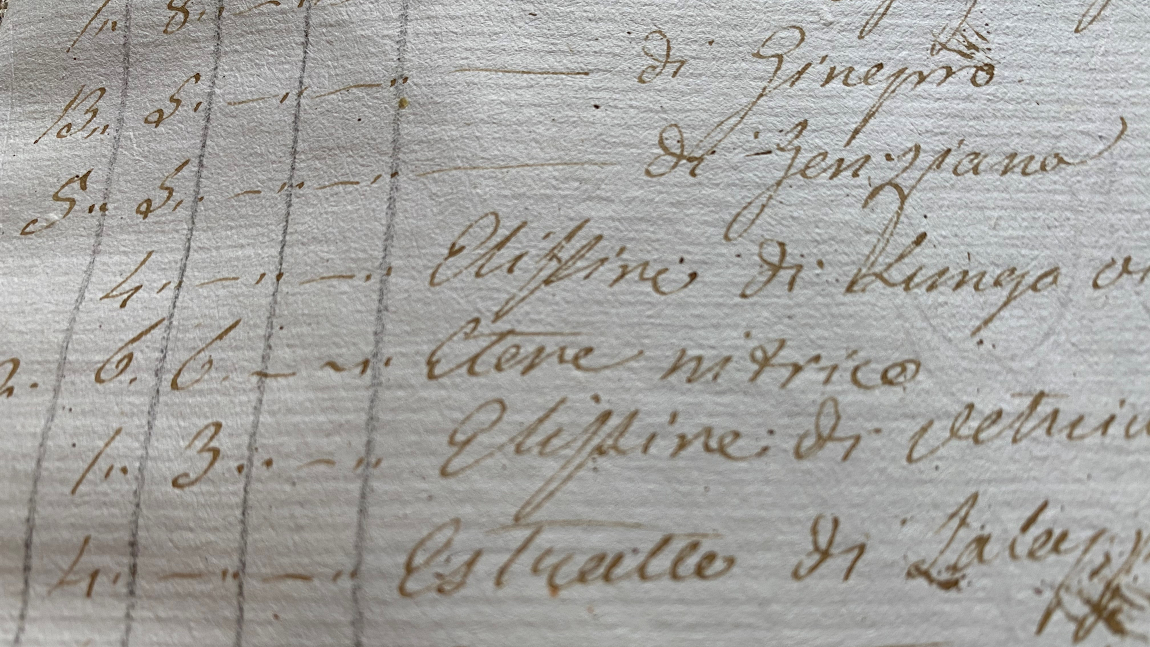 1.. 8.. — ..
13.. 5.. — .. — .. —— di Ginepro
5.. 5.. — .. — .. —— di Genziana
4.. — .. — .. Elissire di Lungo
6. 6. — .. — .. Etere nitrico
1.. 3.. — .. Elissire di
4.. — .. — .. Estratto di